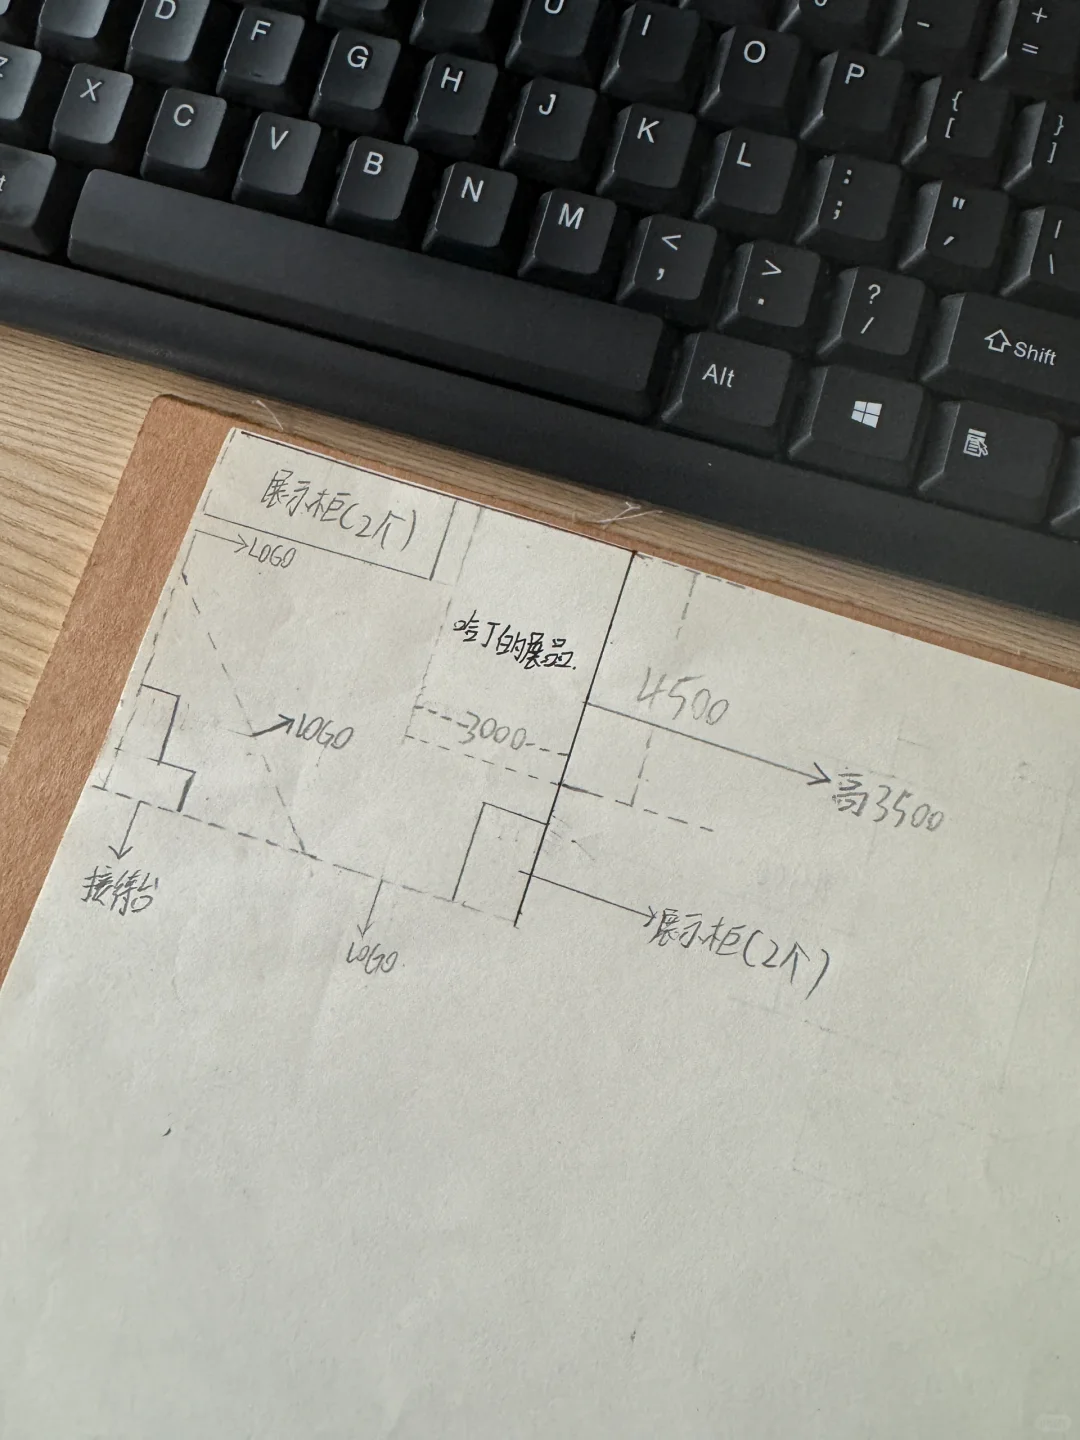 U I O P - + =
D F G H J K L : ; " ' { [ } ] | \
Z X C V B N M < , > . ? / Shift
t Alt
展示柜(2个)
LOGO
哈丁的展品.
4500
LOGO
3000
高3500
接待台
LOGO.
展示柜(2个)